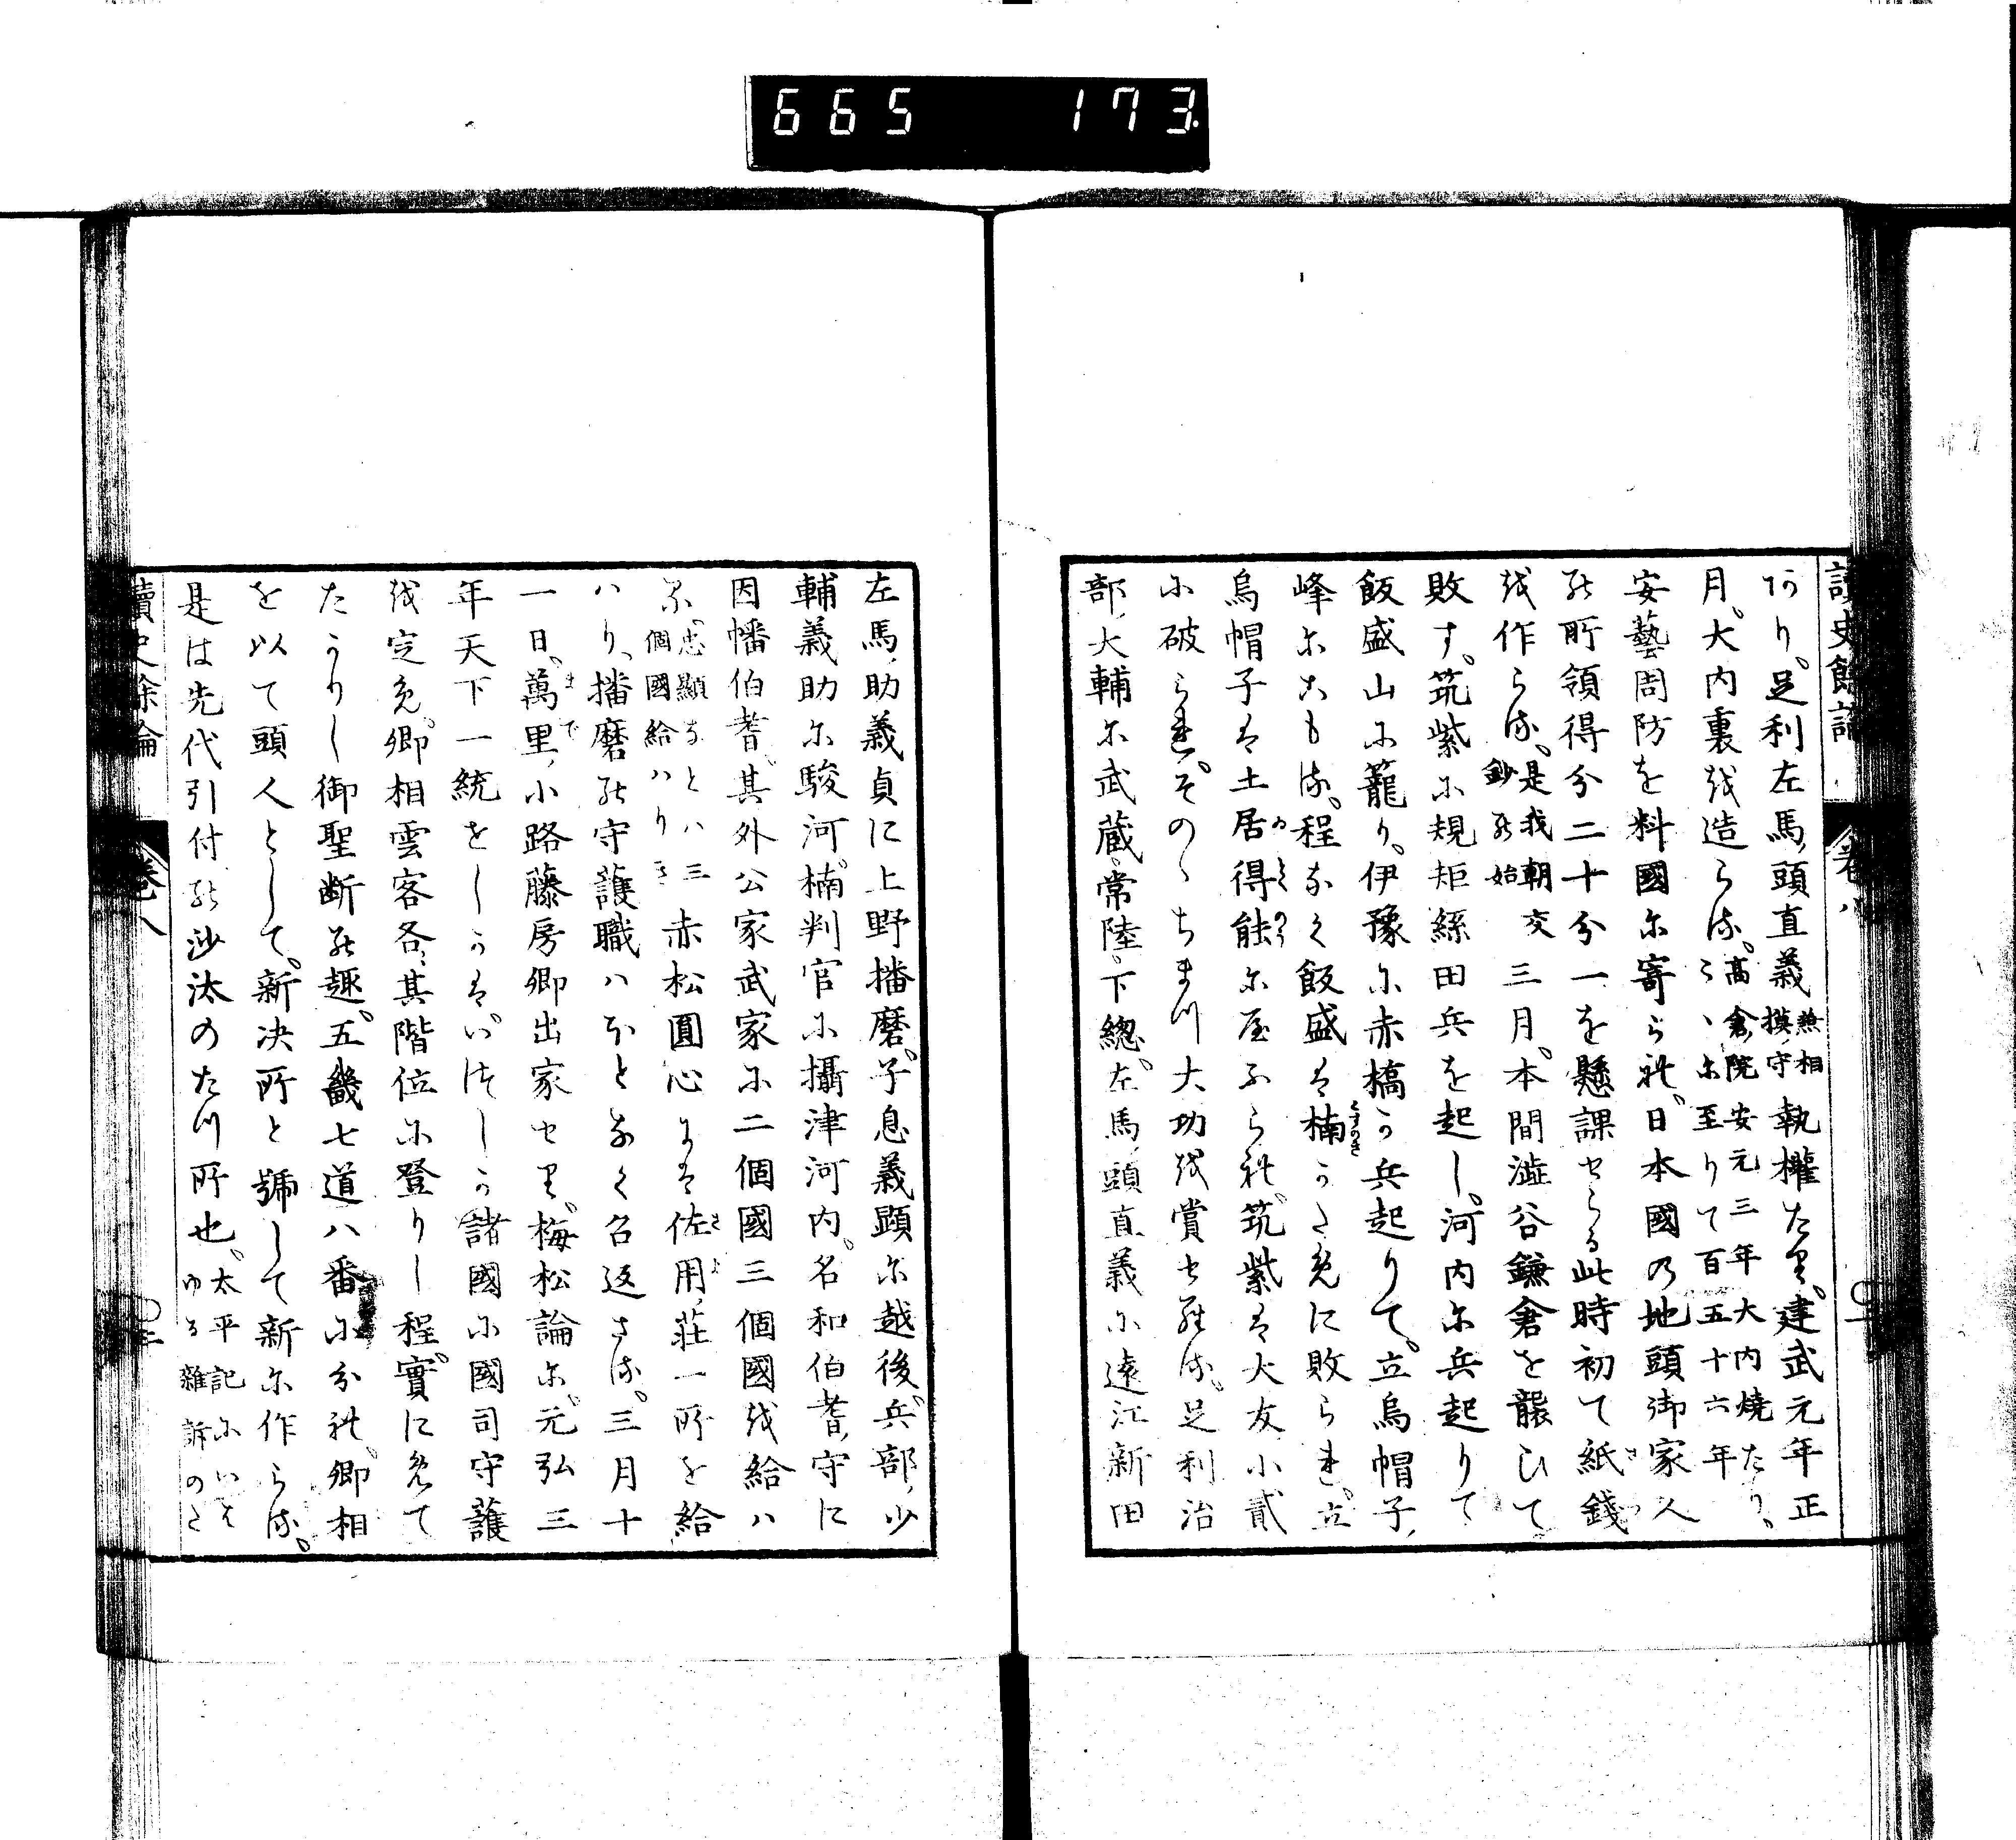 665 173
讀史餘論 卷八
あり。足利左馬頭直義兼相模守執權たり。建武元年正
月。大内裏を造らる。高倉院安元三年大内燒たり。こゝに至りて百五十六年
安藝周防を料國に寄らる。日本國の地頭御家人
の所領得分二十分一を懸課せらる此時初て紙錢
を作らる。是我朝交鈔の始三月。本間澁谷鎌倉を襲ひて
敗す。筑紫に規矩絲田兵を起し。河内に兵起りて
飯盛山に籠り。伊豫に赤橋が兵起りて。立烏帽子
峰にこもる。程なく飯盛は楠がために敗られ。立
烏帽子は土居得能に屋ふられ。筑紫は大友小貳
に破らる。そのゝちまづ大功を賞せらる。足利治
部大輔に武藏常陸下總。左馬頭直義に遠江新田
左馬助義貞に上野播磨。子息義顯に越後。兵部少
輔義助に駿河。楠判官に攝津河内。名和伯耆守に
因幡伯耆。其外公家武家に二個國三個國を給は
る。忠顯などハ三個國給ハりき赤松圓心には佐用莊一所を給
ハり、播磨の守護職ハほどなく召返さる。三月十
一日。萬里小路藤房卿出家せり。梅松論に。元弘三
年天下一統をしかば。いましか諸國に國司守護
を定め。卿相雲客各其階位に登りし程。實にめて
たかりし御聖斷の趣。五畿七道八番に分れ。卿相
を以て頭人として。新决所と號して新に作らる。
是は先代引付の沙汰のたつ所也。太平記にいはゆる雜訴のさ
讀史餘論 卷八